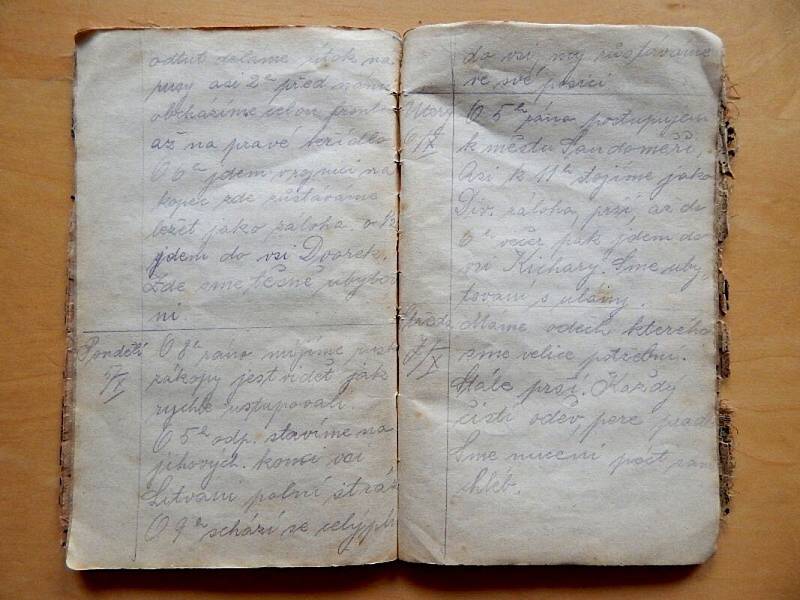 odtut deláme útok na
rusy asi 2h před námi
obcházíme celou frontu
až na pravé křídlo
O 6h jdem vrznici na
kopec zde zůstáváme
ležet jako záloha. o 12
jdem do vsi Dvorek.
Zde sme těsně ubytov
ni.
Pondělí O 8h ráno míjíme rusk
5/X zákopy jest videt jak
rychle ustupovali.
O 5h odp. stavíme na
jihových. konci vsi
Litvani polní stráž
O 9h schází se celý pl
do vsi, my zůstáváme
ve své posici
Úterý O 5h ráno postupujem
6/X k městu Sandoměři,
Asi k 11h stojíme jako
Div. záloha, prší, až do
6h večer pak jdem do
vsi Kichary. Sme uby-
tovani s ulány.
Středa Máme odech kterého
7/X sme velice potřebni.
Stále prší. Každy
čistí oděv, pere prad
Sme nuceni pect sam
chléb.